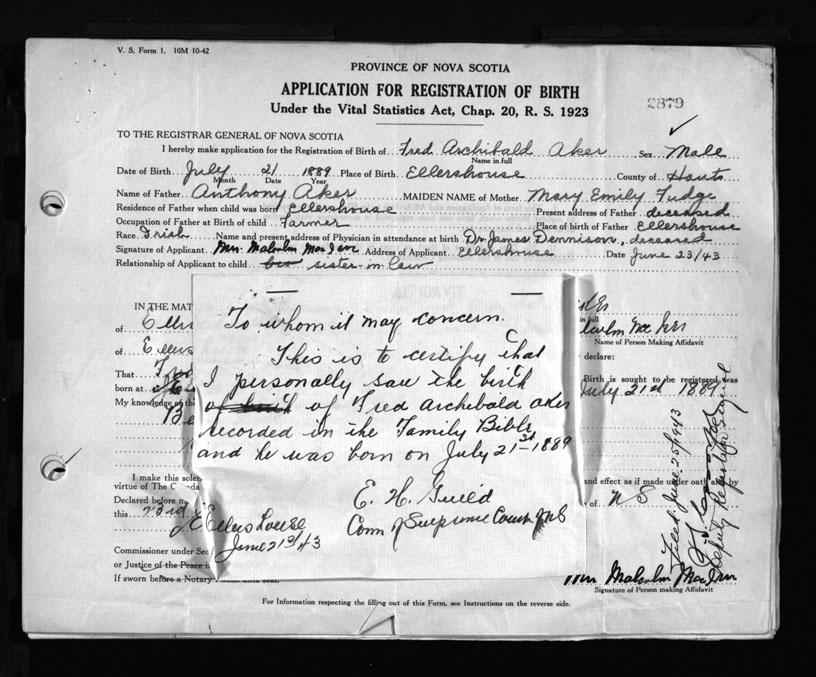 V. S. Form 1. 10M 10-42
PROVINCE OF NOVA SCOTIA
APPLICATION FOR REGISTRATION OF BIRTH
Under the Vital Statistics Act, Chap. 20, R. S. 1923
2879
TO THE REGISTRAR GENERAL OF NOVA SCOTIA
I hereby make application for the Registration of Birth of Fred Archibald Aker Sex Male
Name in full
Date of Birth July 21 1889 Place of Birth Ellershouse County of Hants
Month Date Year
Name of Father Anthony Aker MAIDEN NAME of Mother Mary Emily Fudge
Residence of Father when child was born Ellershouse Present address of Father deceased
Occupation of Father at Birth of child Farmer Place of birth of Father Ellershouse
Race Irish Name and present address of Physician in attendance at birth Dr. James Dennison, deceased
Signature of Applicant Mrs. Malcolm Address of Applicant Ellershouse Date June 23/43
Relationship of Applicant to child sister-in-law
IN THE MAT
of Ellers
in full
of Ellers
Name of Person Making Affidavit
declare:
That
Birth is sought to be registered was
born at July 21st 1889
My knowledge of th
To whom it may concern.
This is to certify that
I personally saw the birth
of birth of Fred Archibald aker
recorded in the Family Bible
and he was born on July 21st 1889
E. H. Guild
Com of Supreme Court N S
Ellershouse
June 21st/43
I make this solem
and effect as if made under oath
virtue of The C nada
Declared before
this 23rd
of N S
Commissioner under Sec
or Justice of the Peace
If sworn before a Notary
Filed June 25/1943
Deputy Registrar General
Mrs. Malcolm
Signature of Person making Affidavit
For Information respecting the filling out of this Form, see Instructions on the reverse side.